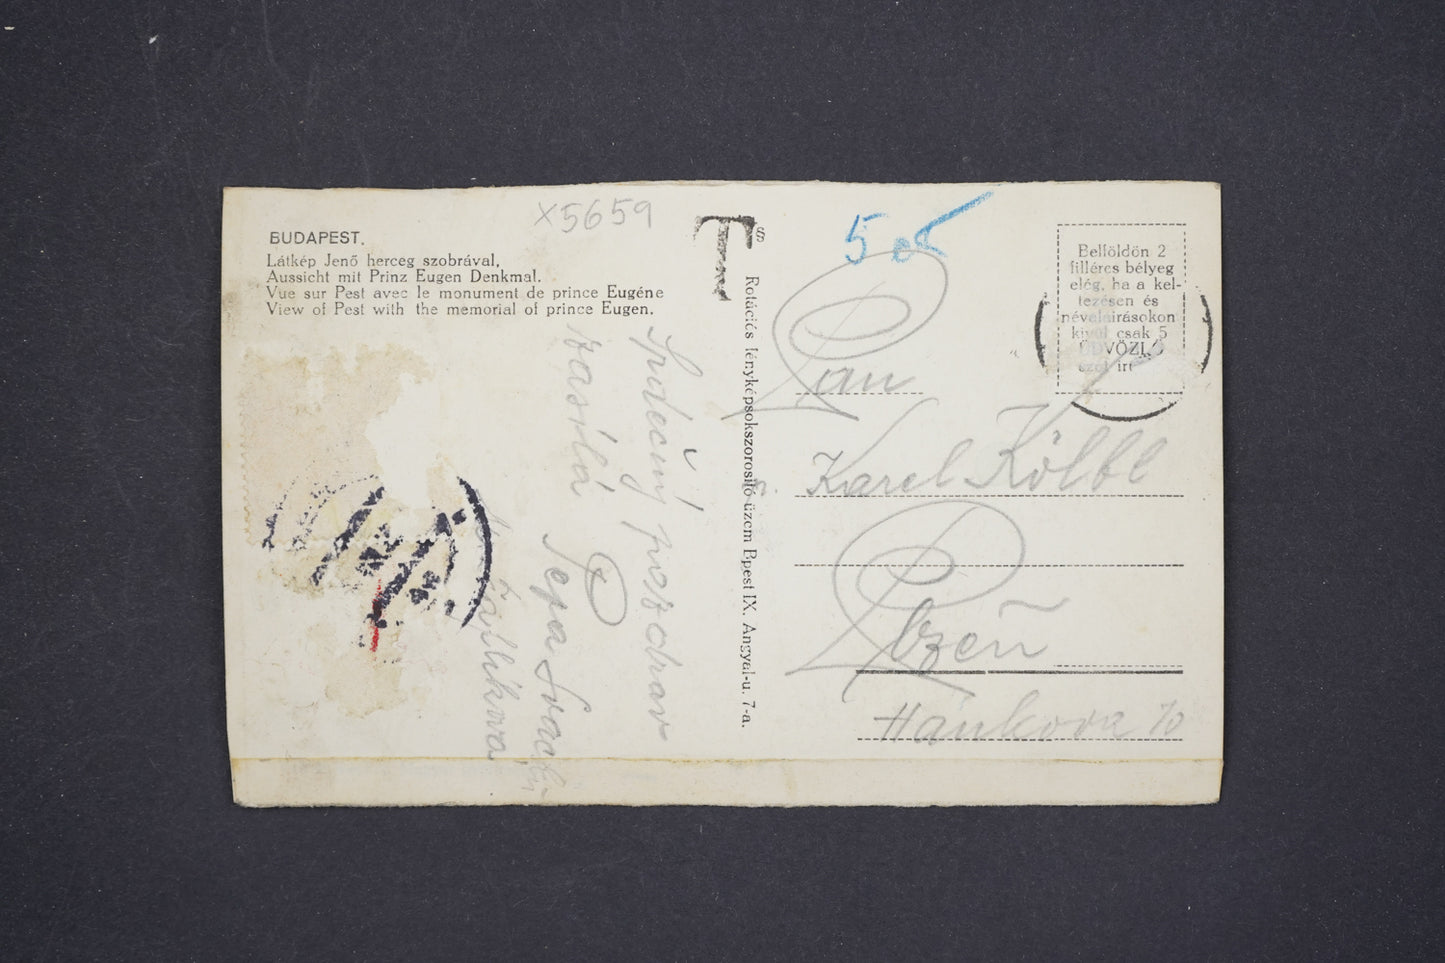 x5659
BUDAPEST.
Látkép Jenő herceg szobrával,
Aussicht mit Prinz Eugen Denkmal.
Vue sur Pest avec le monument de prince Eugéne
View of Pest with the memorial of prince Eugen.
Srdečný pozdrav
zasílá Pepa
T
§
Rotációs fényképsokszorosító-üzem Bpest IX. Angyal-u. 7-a.
Belföldön 2
filléres bélyeg
elég, ha a kel-
tezésen és
névaláirásokon
kivül csak 5
ÜDVÖZLŐ
szót irt
Pan
Karel Kölbl
Plzeň
Hánkova 10